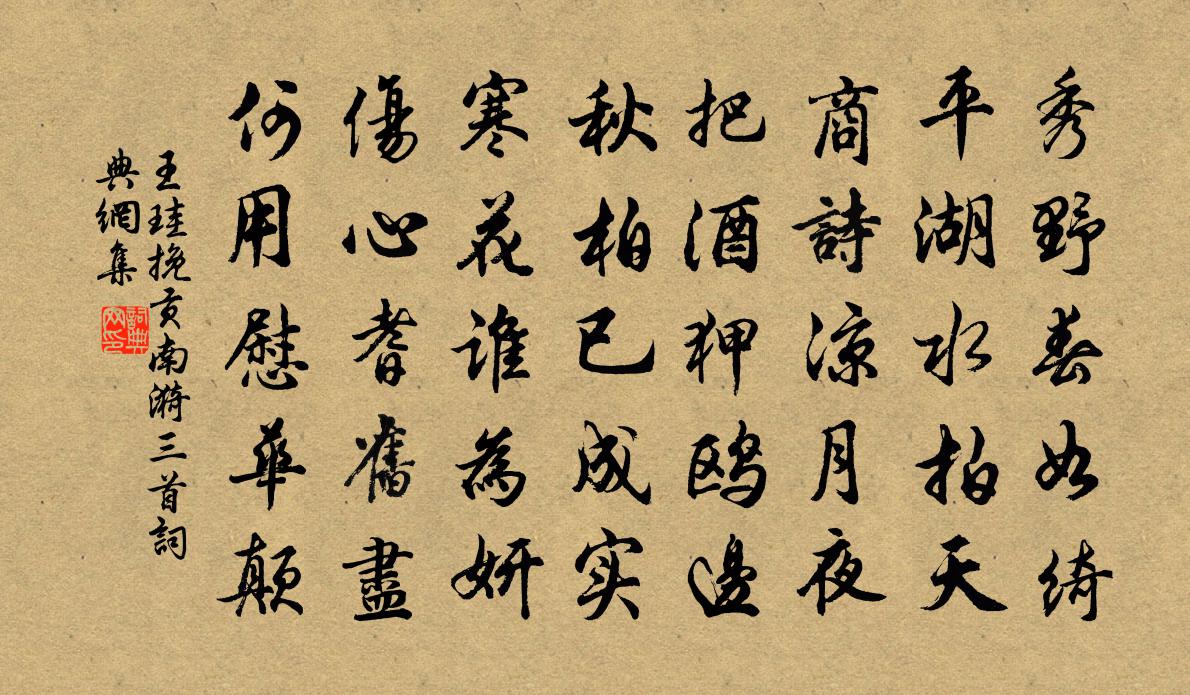 秀野春如綺
平湖水拍天
商詩涼月夜
把酒狎鷗邊
秋柏已成实
寒花誰為妍
傷心耆舊盡
何用慰華顛
王珪挽贡南漪三首詞
典網集
詞典
网印